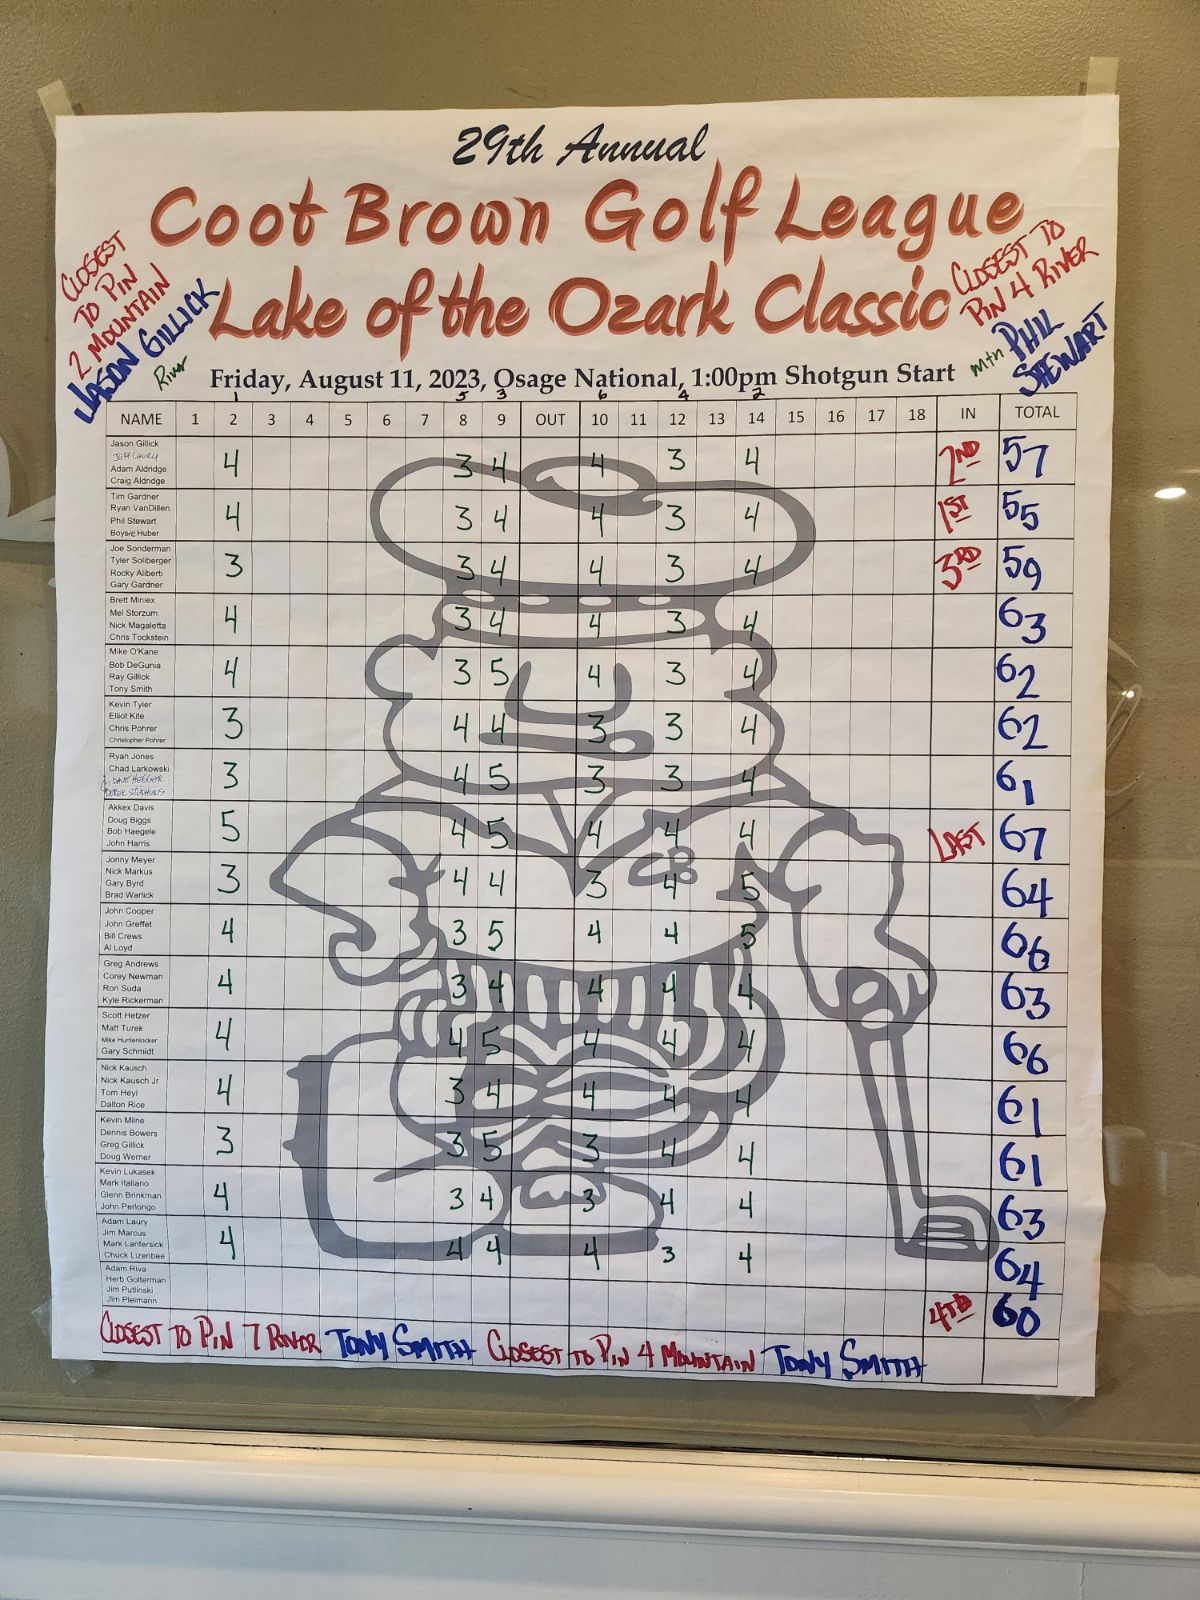 29th Annual
Coot Brown Golf League
Lake of the Ozark Classic
CLOSEST
TO PIN
2 MOUNTAIN
JASON GILLICK
River
CLOSEST TO
PIN 4 RIVER
mtn PHIL
STEWART
Friday, August 11, 2023, Osage National, 1:00pm Shotgun Start
1 5 3 6 4 2
NAME 1 2 3 4 5 6 7 8 9 OUT 10 11 12 13 14 15 16 17 18 IN TOTAL
Jason Gillick
JEFF LAURY
Adam Aldridge
Craig Aldridge
4 3 4 4 3 4 2ND 57
Tim Gardner
Ryan VanDillen
Phil Stewart
Boysie Huber
4 3 4 4 3 4 1ST 55
Joe Sonderman
Tyler Soliberger
Rocky Aliberti
Gary Gardner
3 3 4 4 3 4 3RD 59
Brett Miniex
Mel Storzum
Nick Magaletta
Chris Tockstein
4 3 4 4 3 4 63
Mike O'Kane
Bob DeGunia
Ray Gillick
Tony Smith
4 3 5 4 3 4 62
Kevin Tyler
Elliot Kite
Chris Pohrer
Christopher Pohrer
3 4 4 3 3 4 62
Ryan Jones
Chad Larkowski
DAVE HEGGER
DEREK STEPHENS
3 4 5 3 3 4 61
Akkex Davis
Doug Biggs
Bob Haegele
John Harris
5 4 5 4 4 4 LAST 67
Jonny Meyer
Nick Markus
Gary Byrd
Brad Warlick
3 4 4 3 4 5 64
John Cooper
John Greffet
Bill Crews
Al Loyd
4 3 5 4 4 5 66
Greg Andrews
Corey Newman
Ron Suda
Kyle Rickerman
4 3 4 4 4 4 63
Scott Hetzer
Matt Turek
Mike Huntenlocker
Gary Schmidt
4 4 5 4 4 4 66
Nick Kausch
Nick Kausch Jr
Tom Heyl
Dalton Rice
4 3 4 4 4 4 61
Kevin Milne
Dennis Bowers
Greg Gillick
Doug Werner
3 3 5 3 4 4 61
Kevin Lukasek
Mark Italiano
Glenn Brinkman
John Perlongo
4 3 4 3 4 4 63
Adam Laury
Jim Marcus
Mark Lantersick
Chuck Lizenbee
4 4 4 4 3 4 64
Adam Riva
Herb Golterman
Jim Putlinski
Jim Pleimann
4TD 60
CLOSEST TO PIN 7 RIVER TONY SMITH CLOSEST TO PIN 4 MOUNTAIN TONY SMITH